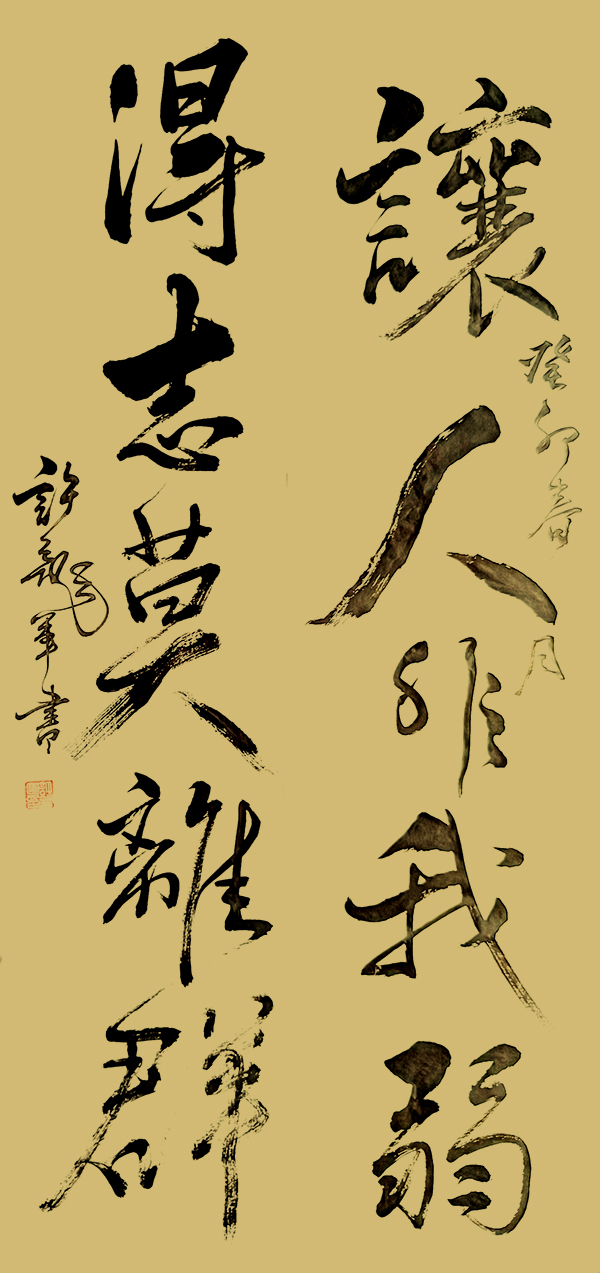 讓人非我弱
癸卯春月
得志莫離群
許龍軍書